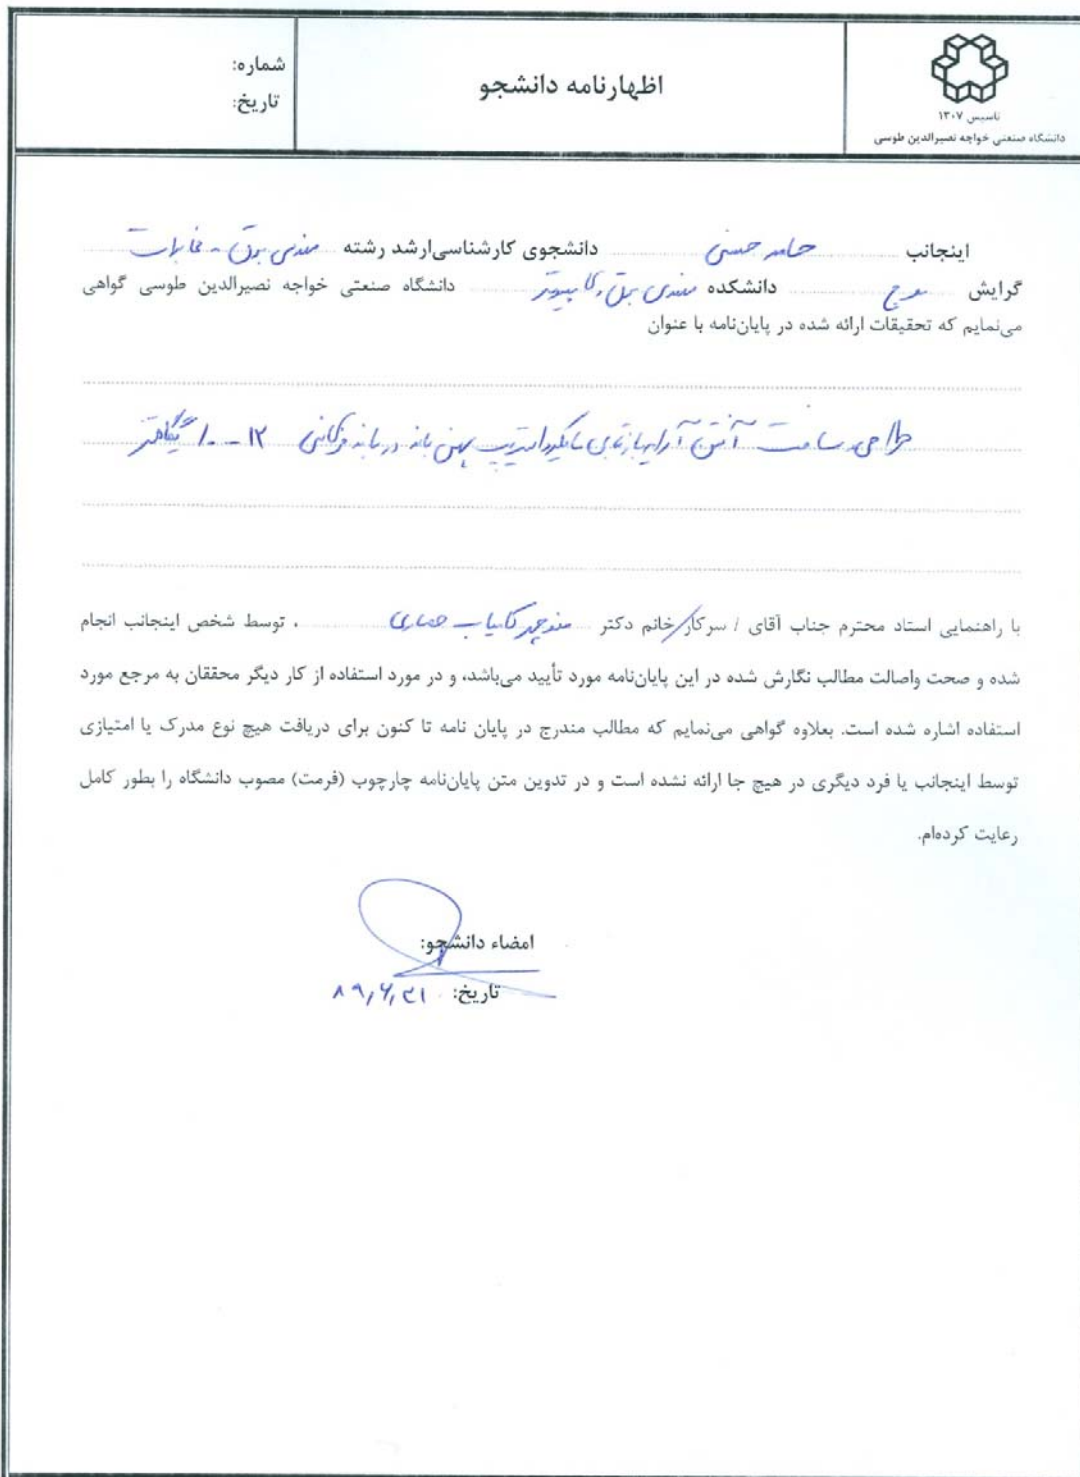 شماره:
تاریخ:
اظهارنامه دانشجو
تاسیس ۱۳۰۷
دانشگاه صنعتی خواجه نصیرالدین طوسی
اینجانب حامد حسنی دانشجوی کارشناسی‌ارشد رشته مهندسی برق - مخابرات
گرایش موج دانشکده مهندسی برق و کامپیوتر دانشگاه صنعتی خواجه نصیرالدین طوسی گواهی
می‌نمایم که تحقیقات ارائه شده در پایان‌نامه با عنوان
طراحی و ساخت آنتن آرایه بازتابی مایکرواستریپ پهن باند در باند فرکانسی ۱۲ - ۱۰ گیگاهرتز
با راهنمایی استاد محترم جناب آقای / سرکار خانم دکتر منوچهر کامیاب حصاری ، توسط شخص اینجانب انجام
شده و صحت واصالت مطالب نگارش شده در این پایان‌نامه مورد تأیید می‌باشد، و در مورد استفاده از کار دیگر محققان به مرجع مورد
استفاده اشاره شده است. بعلاوه گواهی می‌نمایم که مطالب مندرج در پایان نامه تا کنون برای دریافت هیچ نوع مدرک یا امتیازی
توسط اینجانب یا فرد دیگری در هیچ جا ارائه نشده است و در تدوین متن پایان‌نامه چارچوب (فرمت) مصوب دانشگاه را بطور کامل
رعایت کرده‌ام.
امضاء دانشجو:
تاریخ: ۸۹,۶,۳۱